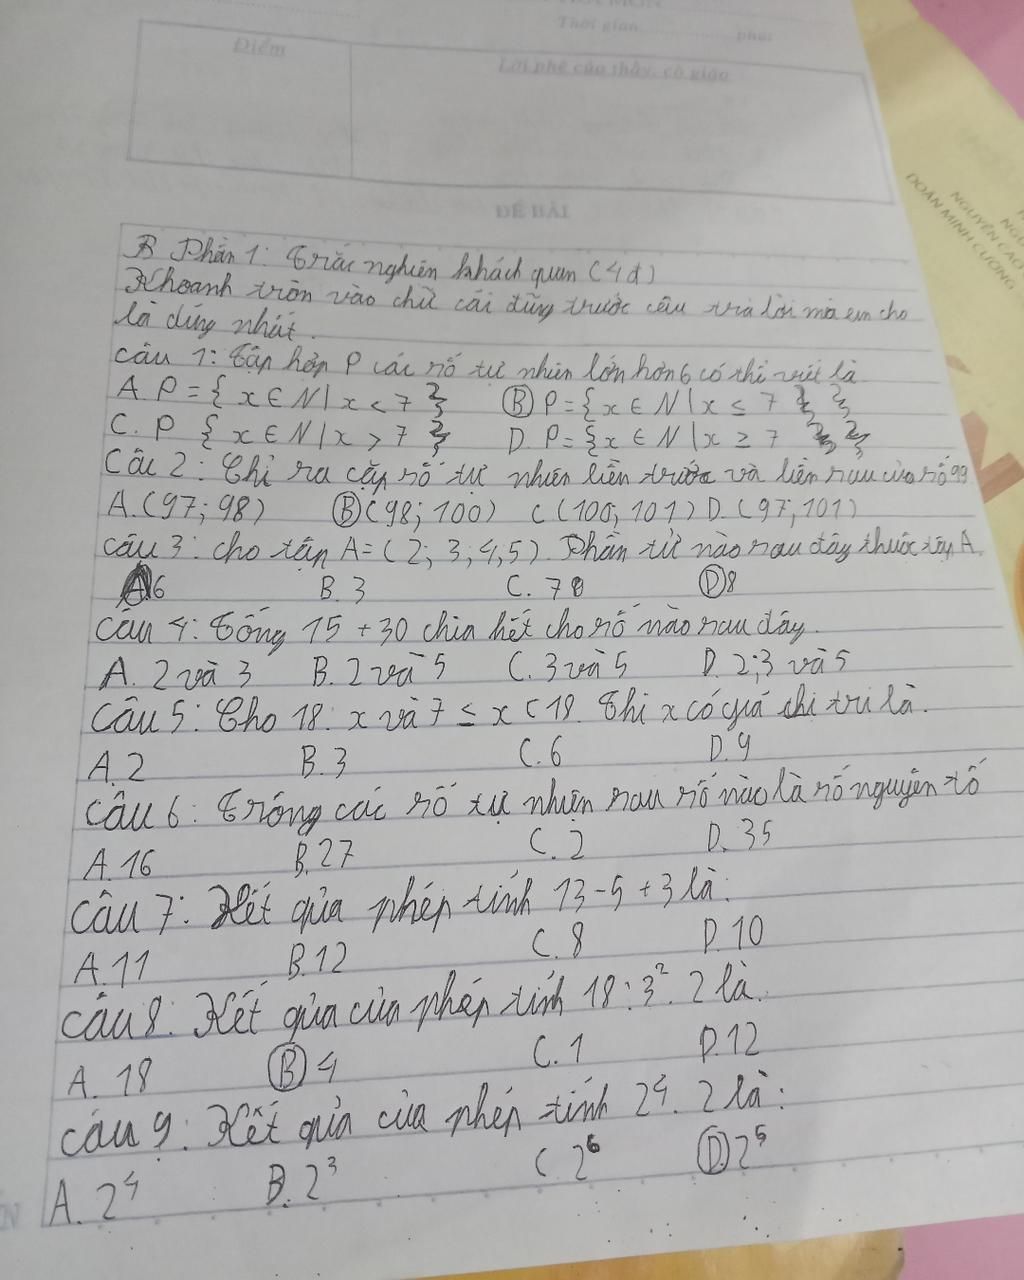 Thời gian..................phút
Điểm
Lời phê của thầy, cô giáo
ĐỀ BÀI
B Phần 1: Trắc nghiên khách quan (4đ)
Khoanh tròn vào chữ cái đứng trước câu trả lời mà em cho
là đúng nhất.
câu 1: Tập hợp P các số tự nhiên lớn hơn 6 có thể viết là
A. P = { x ∈ N | x < 7 } B P = { x ∈ N | x ≤ 7 }
C. P { x ∈ N | x > 7 } D. P = { x ∈ N | x ≥ 7 }
Câu 2: Chỉ ra cặp số tự nhiên liền trước và liền sau của số 99
A. (97; 98) B (98; 100) C (100; 101) D. (97; 101)
câu 3: cho tập A = (2; 3; 4, 5). Phần tử nào sau đây thuộc tập A.
A 6 B. 3 C. 7 D 8
câu 4: Tổng 15 + 30 chia hết cho số nào sau đây.
A. 2 và 3 B. 2 và 5 C. 3 và 5 D. 2; 3 và 5
Câu 5: Cho 18 : x và 7 ≤ x < 18. Thì x có giá chi trị là.
A. 2 B. 3 C. 6 D. 9
Câu 6: Trong các số tự nhiên sau số nào là số nguyên tố
A. 16 B. 27 C. 2 D. 35
Câu 7: Kết qủa phép tính 13 - 5 + 3 là:
A. 11 B. 12 C. 8 D. 10
Câu 8: Kết qủa của phép tính 18 : 3². 2 là.
A. 18 B 4 C. 1 D. 12
câu 9: Kết qủa của phép tính 24. 2 là:
A. 2⁴ B. 2³ C. 2⁶ D. 2⁵
NGUYỄN CAO
DOÃN MINH CƯỜNG